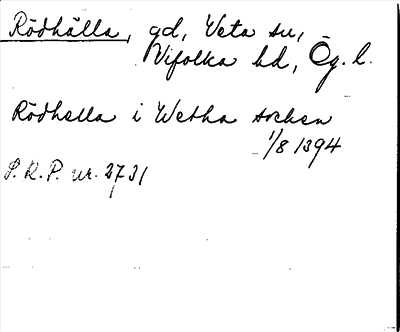 Rödhälla, gd, Veta sn,
Vifolka hd, Ög. l.
Rödhella i Wetha sochen
1/8 1394
S.R.P. nr. 2731